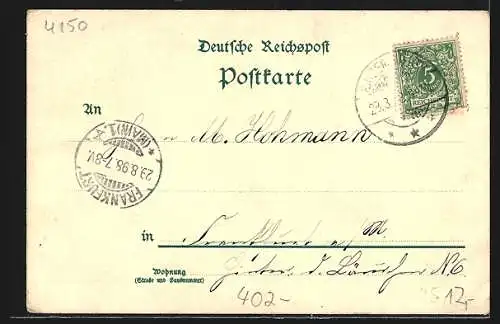 4150
Deutsche Reichspost
Postkarte
5
An
Herrn M. Hohmann
FRANKFURT
(MAIN) 1
29.8.98. 7-8V.
29.3
in Frankfurt a/M.
Wohnung
(Straße und Hausnummer)
hinter d. N 6.
402-
12,-